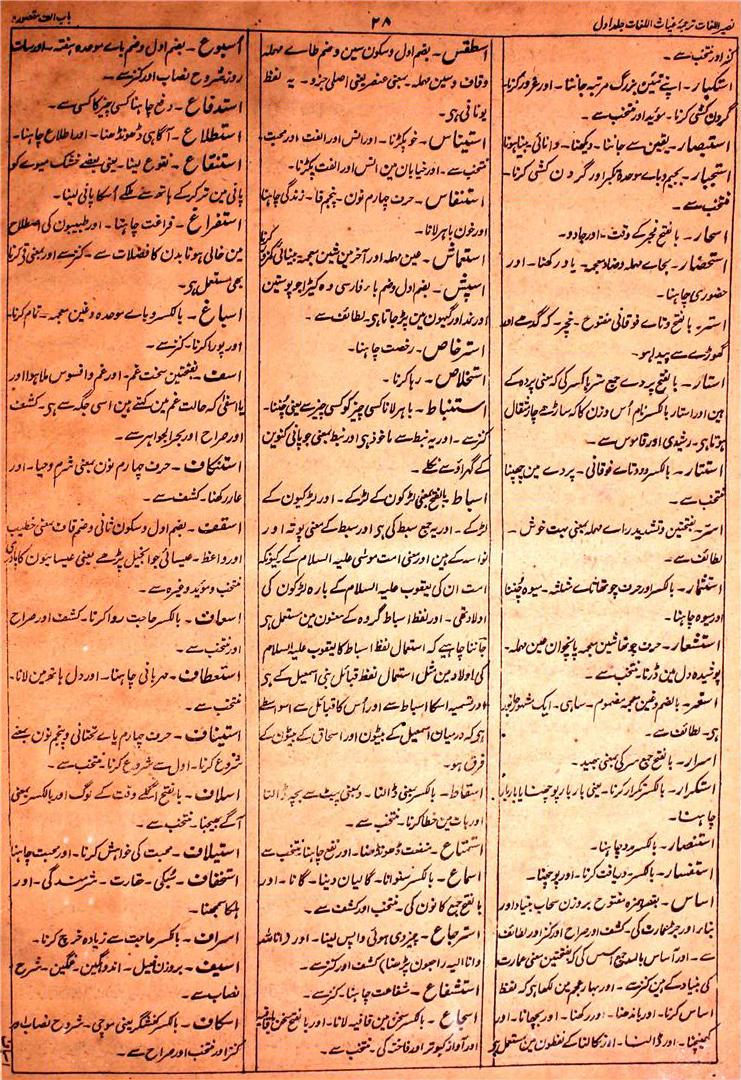 نصیر اللغات ترجمۂ غیاث اللغات جلد اول
۲۸
باب الف مقصورہ
کنز اور منتخب سے ۔
استکبار ۔ اپنے تئین بزرگ مرتبہ جاننا ۔ اور غرور کرنا ۔
گردن کشی کرنا ۔ مؤید اور منتخب سے ۔
استبصار ۔ یقین سے جاننا ۔ دیکھنا ۔ دانائی بینا ہونا
استجبار ۔ بجیم و باے موحدہ تکبر اور گردن کشی کرنا ۔
منتخب سے ۔
اسحار ۔ بالفتح فجر کے وقت ۔ اور جادو ۔
استحضار ۔ بحاے مہملہ و ضاد معجمہ ۔ یاد رکھنا ۔ اور
حضوری چاہنا ۔
استر ۔ بالفتح و تاے فوقانی مفتوح ۔ خچر ۔ کہ گدھے اور
گھوڑے سے پیدا ہو ۔
استار ۔ بالفتح پردے جمع ستر بالکسر کی کہ معنی پردہ کے
ہین اور استار بالکسر نام اُس وزن کا کہ ساڑھے چار مثقال
ہوتا ہی ۔ رشیدی اور قاموس سے ۔
استتار ۔ بالکسر و تاے فوقانی ۔ پردے مین چھپنا
منتخب سے ۔
اسر ۔ بفتحتین و تشدید راے مہملہ بمعنی بہت خوش ۔
لطائف سے ۔
استثمار ۔ بالکسر اور حرف چوتھا ثاے مثلثہ ۔ میوہ چُننا
اور میوہ چاہنا ۔
استشعار ۔ حرف چوتھا شین معجمہ پانچوان عین مہملہ ۔
پوشیدہ دل مین ڈرنا ۔ منتخب سے ۔
اسغر ۔ بالضم و غین معجمہ مضموم ۔ ساہی ۔ ایک مشہور جانور
ہی ۔ لطائف سے ۔
اسرار ۔ بالفتح جمع سر کی بمعنی بھید ۔
استکرار ۔ بالکسر تکرار کرنا ۔ یعنی بار بار پوچھنا یا بار بار
چاہنا ۔
استنصار ۔ بالکسر مدد چاہنا ۔
استفسار ۔ بالکسر ۔ دریافت کرنا ۔ اور پوچھنا ۔
اساس ۔ بقصر ہمزہ مفتوح بروزن سحاب بنیاد اور
بناء اور جڑ عمارت کی ۔ کشف اور صراح اور کنز اور لطائف
سے ۔ اور آساس بالمد جمع اسس کی کہ بفتحتین بمعنی عمارت
کی بنیاد کے ہین کنز سے ۔ اور بہار عجم مین لکھا ہی کہ لفظ
اساس کرنا ۔ اور باندھنا ۔ اور رکھنا ۔ اور بچھانا ۔ اور
کھینچنا ۔ اور ڈالنا ۔ اور نکالنا کے لفظون مین مستعمل ہی
اسطقس ۔ بضم اول و سکون سین و ضم طاے مہملہ
و قاف و سین مہملہ ۔ بمعنی عنصر یعنی اصلی جزو ۔ یہ لفظ
یونانی ہی ۔
استیناس ۔ خو پکڑنا ۔ اور انس اور الفت اور محبت ۔
منتخب سے ۔ اور خیابان مین انس اور الفت پکڑنا ۔
استنفاس ۔ حرف چہارم نون ۔ پنجم فا ۔ زندگی چاہنا
اور خون باہر لانا ۔
استعماش ۔ عین مہملہ اور آخر مین شین معجمہ ۔ بینائی کمزور کرنا
اسپش ۔ بضم اول و ضم باء فارسی وہ کیڑا جو پوستین
اور نمد اور گیہون مین پڑ جاتا ہی ۔ لطائف سے ۔
استرخاص ۔ رخصت چاہنا ۔
استخلاص ۔ رہا کرنا ۔
استنباط ۔ باہر لانا کسی چیز کو کسی چیز سے یعنی چُننا ۔
کنز سے ۔ اور یہ نبط سے ماخوذ ہی اور نبط بمعنی جو پانی کنوین
کے گہراؤ سے نکلے ۔
اسباط بالفتح بمعنی لڑکون کے لڑکے ۔ اور لڑکیون کے
لڑکے ۔ اور یہ جمع سبط کی ہی اور سبط کے معنی پوتہ اور
نواسہ کے ہین اور معنی امت موسیٰ علیہ السلام کے کیونکہ
امت ان کی یعقوب علیہ السلام کے بارہ لڑکون کی
اولاد تھی ۔ اور لفظ اسباط گروہ کے معنون مین مستعمل ہی
جاننا چاہیے کہ استعمال لفظ اسباط کا یعقوب علیہ السلام
کی اولاد مین مثل استعمال لفظ قبائل بنی اسمعیل کے ہی
اور تسمیہ اسکا اسباط سے اور اُس کا قبائل سے اسواسطے
ہی کہ درمیان اسمعیل کے بیٹون اور اسحاق کے بیٹون کے
فرق ہو ۔
اسقاط ۔ بالکسر بمعنی ڈالنا ۔ و بمعنی پیٹ سے بچہ ڈالنا
اور بات مین خطا کرنا ۔ منتخب سے ۔
استمتاع ۔ منفعت ڈھونڈھنا ۔ اور نفع چاہنا منتخب سے
اسماع ۔ بالکسر سنوانا ۔ گالیان دینا ۔ گانا ۔ اور
بالفتح جمع کانون کی ۔ منتخب اور کشف سے ۔
استرجاع ۔ چیز دی ہوئی واپس لینا ۔ اور (انا للہ
و انا الیہ راجعون پڑھنا) کشف اور کنز سے ۔
استشفاع ۔ شفاعت چاہنا ۔ کنز سے ۔
اسجاع ۔ بالکسر سخن مین قافیہ لانا ۔ اور بالفتح سخن باقافیہ
اور آواز کبوتر اور فاختہ کی ۔ منتخب سے ۔
اسبوع ۔ بضم اول و ضم باے موحدہ ہفتہ ۔ اور سات
روز شروح نصاب اور کنز سے ۔
استدفاع ۔ دفع چاہنا کسی چیز کا کسی سے ۔
استطلاع ۔ آگاہی ڈھونڈھنا ۔ اور اطلاع چاہنا ۔
استنقاع ۔ نقوع لینا ۔ یعنی بعضے خشک میوے کو
پانی مین تر کر کے ہاتھ سے ملکے اُسکا پانی لینا ۔
استفراغ ۔ فراغت چاہنا ۔ اور طبیبون کی اصطلاح
مین خالی ہونا بدن کا فضلات سے ۔ کنز سے اور بمعنی قی کرنا
بھی مستعمل ہی ۔
اسباغ ۔ بالکسر و باے موحدہ و غین معجمہ ۔ تمام کرنا ۔
اور پورا کرنا ۔ کنز سے ۔
اسف ۔ بفتحتین سخت غم ۔ اور غم و افسوس ملا ہوا اور
یا اسفیٰ کہ حالت غم مین کہتے ہین اسی جگہ سے ہی ۔ کشف
اور صراح اور بحر الجواہر سے ۔
استنکاف ۔ حرف چہارم نون بمعنی شرم و حیا ۔ اور
عار رکھنا ۔ کشف سے ۔
اسقف ۔ بضم اول و سکون ثانی و ضم قاف بمعنی خطیب
اور واعظ ۔ عیسائی جو انجیل پڑھے یعنی عیسائیون کا پادری
منتخب و مؤید وغیرہ سے ۔
اسعاف ۔ بالکسر حاجت روا کرنا ۔ کشف اور صراح
اور منتخب سے ۔
استعطاف ۔ مہربانی چاہنا ۔ اور دل ہاتھ مین لانا ۔
منتخب سے ۔
استیناف ۔ حرف چہارم یاے تحتانی و پنجم نون بمعنی
شروع کرنا ۔ اول سے شروع کرنا ۔ منتخب سے ۔
اسلاف ۔ بالفتح اگلے وقت کے لوگ اور بالکسر بمعنی
آگے بھیجنا ۔ منتخب سے ۔
استیلاف ۔ محبت کی خواہش کرنا ۔ اور محبت چاہنا
استخفاف ۔ سُبکی ۔ حقارت ۔ شرمندگی ۔ اور
ہلکا سمجھنا ۔
اسراف ۔ بالکسر حاجت سے زیادہ خرچ کرنا ۔
اسیف ۔ بروزن فعیل ۔ اندوہگین ۔ غمگین ۔ شرح
نصاب سے ۔
اسکاف ۔ بالکسر کفشگر یعنی موچی ۔ شروح نصاب اور
کنز اور منتخب اور صراح سے ۔